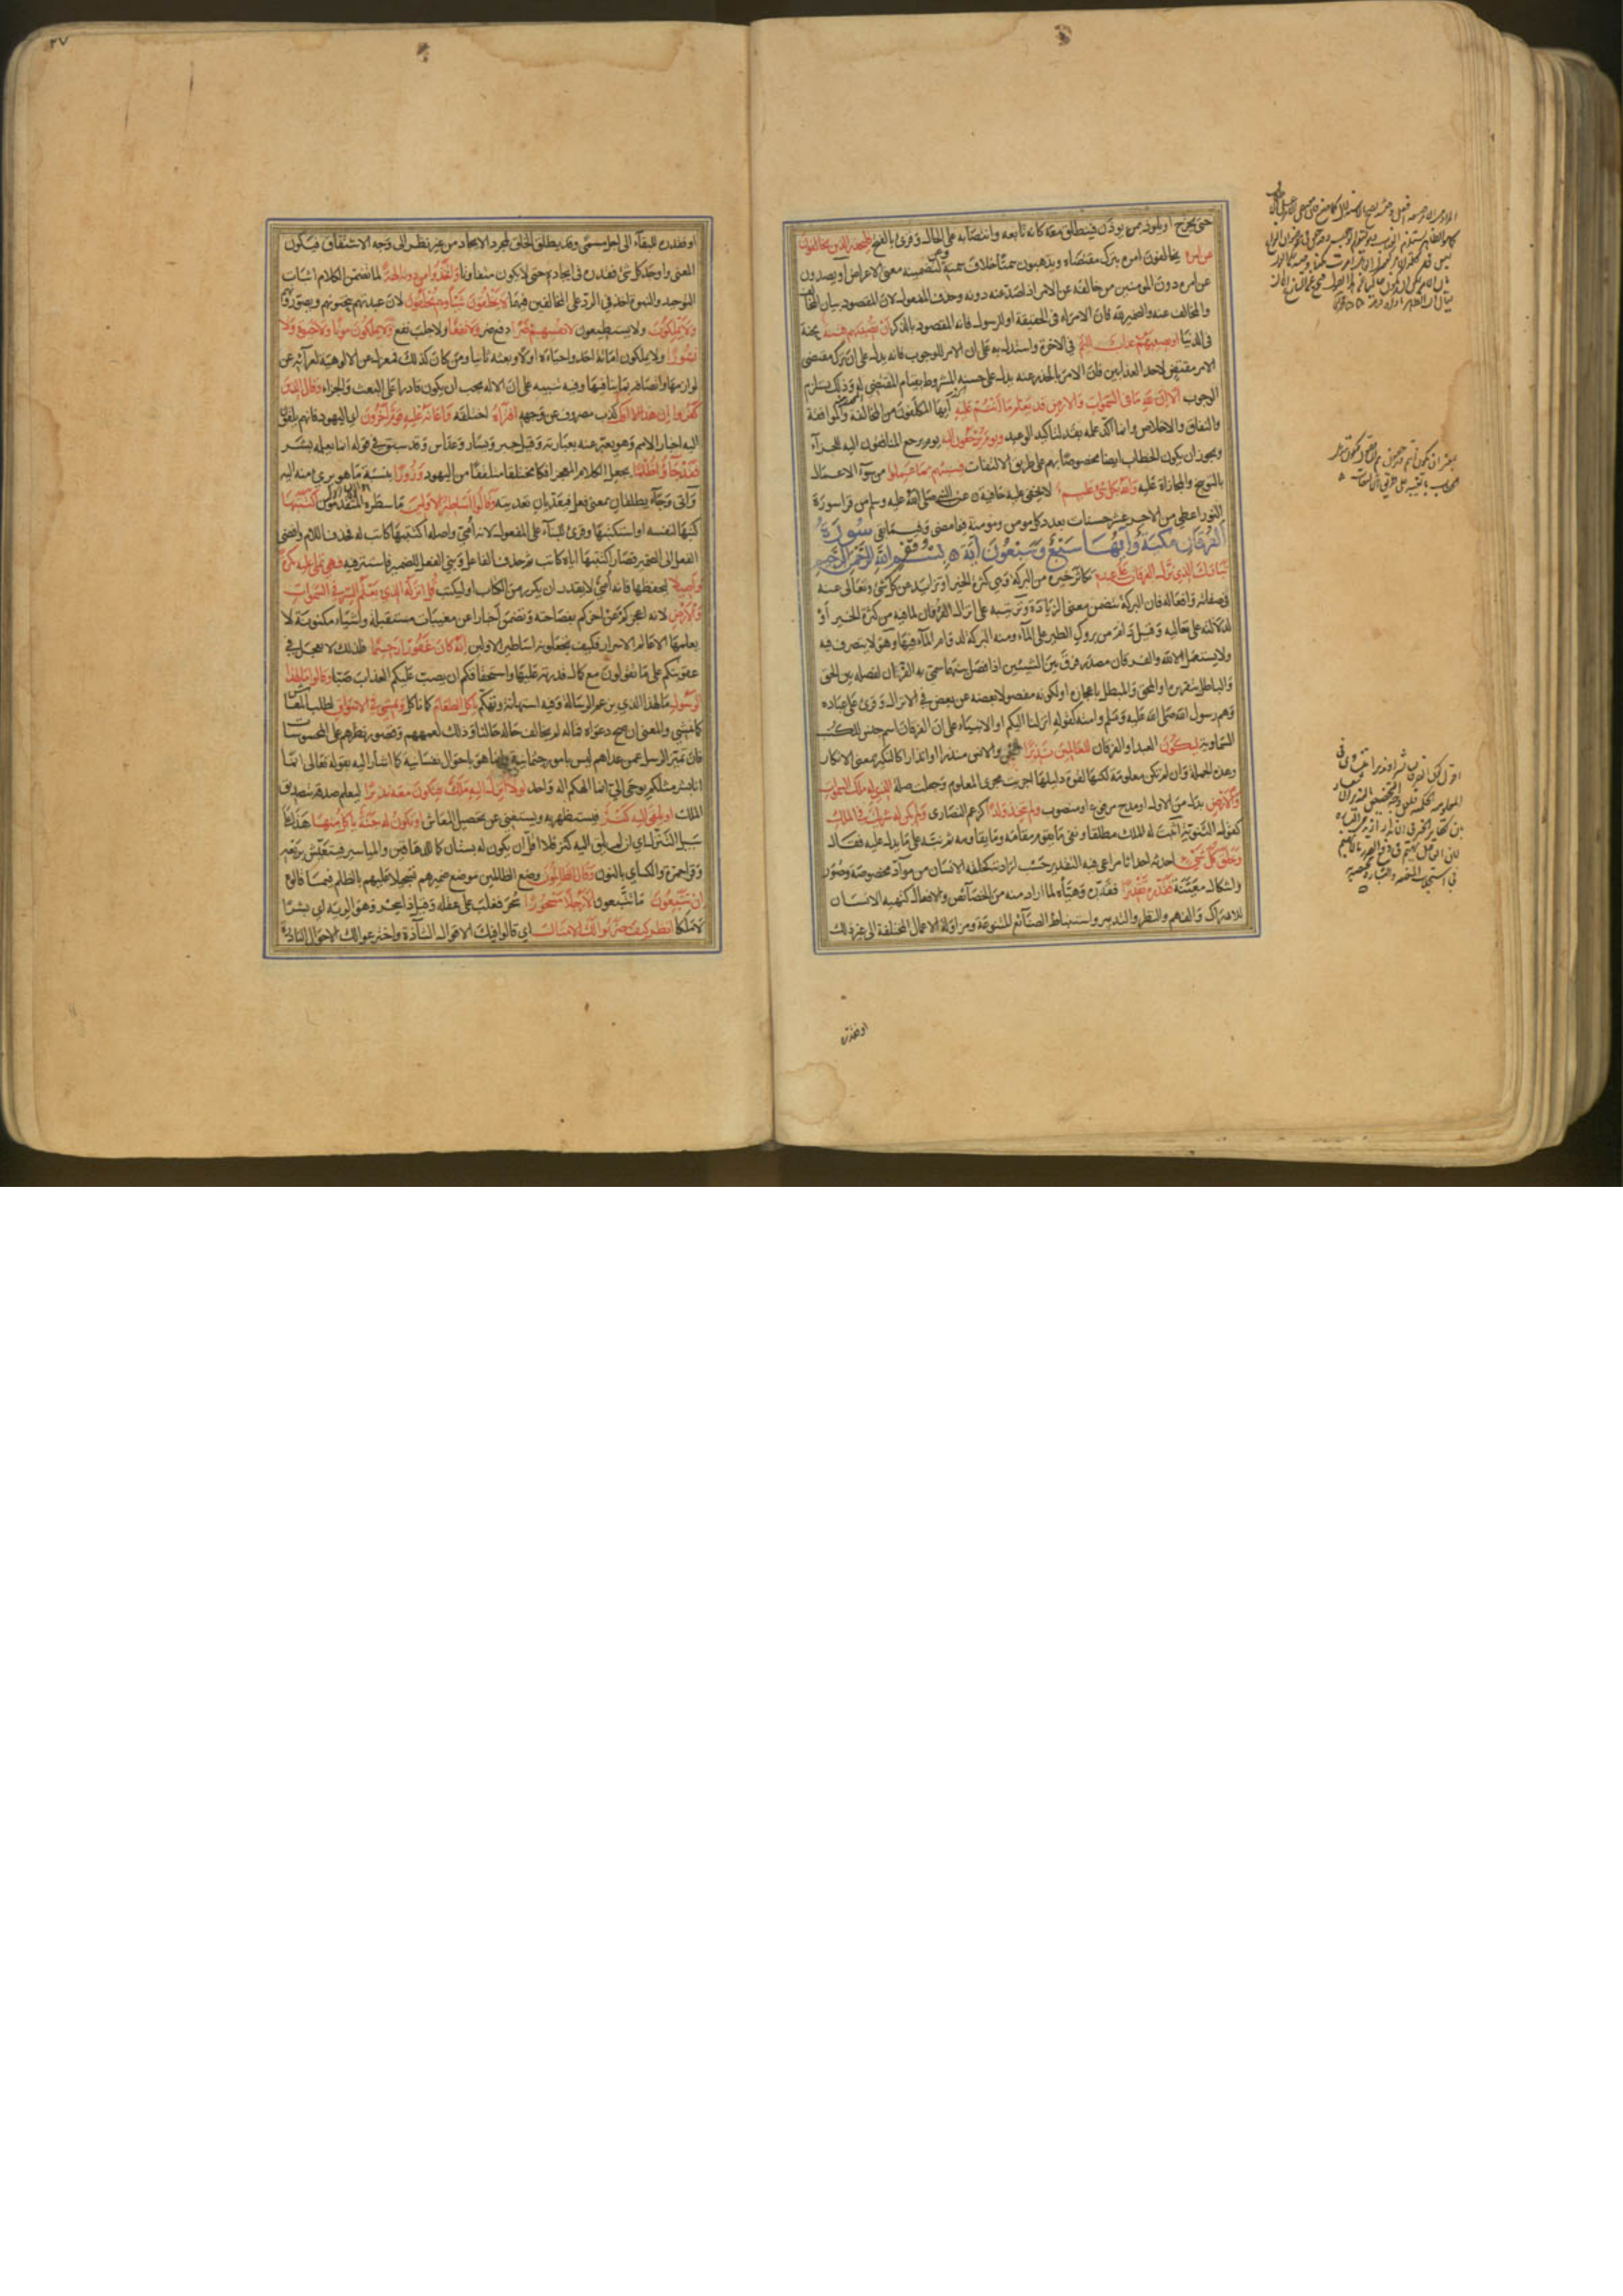 حتى يخرج او يلوذ بمن يؤذن فينطلق معه كانه تابعه وانتصابه على الحال وقرئ بالفتح فليحذر الذين يخالفون
عن امره يخالفون امره بترك مقتضاه ويذهبون سمتا خلاف سمته وعن لتضمنه معنى الاعراض او يصدون
عن امره دون المؤمنين من خالفه عن الامر اذا صد عنه دونه وحذف المفعول لان المقصود بيان المخالف
والمخالف عنه والضمير لله فان الامر له في الحقيقة او للرسول فانه المقصود بالذكر ان تصيبهم فتنة محنة
في الدنيا او يصيبهم عذاب اليم في الاخرة واستدل به على ان الامر للوجوب فانه يدل على ان ترك مقتضى
الامر مقتض لاحد العذابين فان الامر بالحذر عنه يدل على حسنه المشروط بقيام المقتضي له وذلك يستلزم
الوجوب الا ان لله ما في السموات والارض قد يعلم ما انتم عليه ايها المكلفون من المخالفة والموافقة
والنفاق والاخلاص وانما اكد علمه بقد لتاكيد الوعيد ويوم يرجعون اليه يوم يرجع المنافقون اليه للجزآء
ويجوز ان يكون الخطاب ايضا مخصوصا بهم على طريق الالتفات فينبئهم بما عملوا من سوء الاعمال
بالتوبيخ والمجازاة عليه والله بكل شئ عليم لا يخفى عليه خافية عن النبي صلى الله عليه وسلم من قرا سورة
النور اعطي من الاجر عشر حسنات بعدد كل مومن ومؤمنة فيما مضى وفيما بقي سورة
الفرقان مكية وآيها سبع وسبعون آية بسم الله الرحمن الرحيم
تبارك الذي نزل الفرقان على عبده تكاثر خيره من البركة وهي كثرة الخير او تزايد عن كل شئ وتعالى عنه
في صفاته وافعاله فان البركة تتضمن معنى الزيادة وترتيبه على انزال الفرقان لما فيه من كثرة الخير او
لدلالته على تعاليه وقيل دام من بروك الطير على المآء ومنه البركة لدوام المآء فيها وهو لا يتصرف فيه
ولا يستعمل الا لله والفرقان مصدر فرق بين الشيئين اذا فصل بينهما سمي به القرآن لفصله بين الحق
والباطل بتقريره او المحق والمبطل باعجازه او لكونه مفصولا بعضه عن بعض في الانزال وقرئ على عباده
وهم رسول الله صلى الله عليه وسلم وامته كقوله انزلنا اليكم او الانبياء على ان الفرقان اسم جنس للكتب
السماوية ليكون العبد او الفرقان للعالمين نذيرا للجن والانس منذرا او انذارا كالنكير بمعنى الانكار
وهذه الجملة وان لم تكن معلومة لكنها لقوة دليلها اجريت مجرى المعلوم وجعلت صلة الذي له ملك السموات
والارض بدل من الاول او مدح مرفوع او منصوب ولم يتخذ ولدا كزعم النصارى ولم يكن له شريك في الملك
كقول الثنوية اثبت له الملك مطلقا ونفى ما يقوم مقامه وما يقاومه ثم نبه على ما يدل عليه فقال
وخلق كل شئ احدثه احداثا مراعى فيه التقدير حسب ارادته كخلقه الانسان من مواد مخصوصة وصور
واشكال معينة فقدره تقديرا فقدره وهيأه لما اراد منه من الخصائص والافعال كتهيئة الانسان
للادراك والفهم والنظر والتدبير واستنباط الصنائع المتنوعة ومزاولة الاعمال المختلفة الى غير ذلك
او فقدره
٣٧
او فقدره للبقآء الى اجل مسمى وقد يطلق الخلق لمجرد الايجاد من غير نظر الى وجه الاشتقاق فيكون
المعنى واوجد كل شئ فقدره في ايجاده حتى لا يكون متفاوتا واتخذوا من دونه آلهة لما تضمن الكلام اثبات
التوحيد والنبوة اخذ في الرد على المخالفين فيهما لا يخلقون شيأ وهم يخلقون لان عبدتهم ينحتونهم ويصورونهم
ولا يملكون ولا يستطيعون لانفسهم ضرا دفع ضر ولا نفعا ولا جلب نفع ولا يملكون موتا ولا حيوة ولا
نشورا ولا يملكون اماتة احد واحياءه اولا وبعثه ثانيا ومن كان كذلك فبمعزل عن الالوهية لعرائه عن
لوازمها واتصافه بما ينافيها وفيه تنبيه على ان الاله يجب ان يكون قادرا على البعث والجزاء وقال الذين
كفروا ان هذا الا افك كذب مصروف عن وجهه افتراه اختلقه واعانه عليه قوم آخرون اي اليهود فانهم يلقون
اليه اخبار الامم وهو يعبر عنه بعبارته وقيل جبر ويسار وعداس وقد سبق في قوله انما يعلمه بشر
فقد جاؤا ظلما بجعل الكلام المعجز افكا مختلقا متلقفا من اليهود وزورا بنسبة ما هو برئ منه اليه
وآتى وجآء يطلقان بمعنى فعل فيعديان تعديته وقالوا اساطير الاولين ما سطره المتقدمون اكتتبها
كتبها لنفسه او استكتبها وقرئ للبنآء على المفعول لانه امي واصله اكتتبها كاتب له فحذف اللام وافضي
الفعل الى الضمير فصار اكتتبها اياه كاتب ثم حذف الفاعل وبني الفعل للضمير فاستتر فيه فهي تملى عليه بكرة
واصيلا ليحفظها فانه امي لا يقدر ان يكرر من الكتاب او ليكتب قل انزله الذي يعلم السر في السموات
والارض لانه اعجزكم عن اخركم بفصاحته وتضمن اخبارا عن مغيبات مستقبلة واشياء مكنونة لا
يعلمها الا عالم الاسرار فكيف تجعلونه اساطير الاولين انه كان غفورا رحيما فلذلك لا يعجل في
عقوبتكم على ما تقولون مع كمال قدرته عليها واستحقاقكم ان يصب عليكم العذاب صبا وقالوا مال هذا
الرسول ما لهذا الذي يزعم الرسالة وفيه استهانة وتهكم يأكل الطعام كما ناكل ويمشي في الاسواق لطلب المعاش
كما نمشي والمعنى ان صح دعواه فما له لم يخالف حاله حالنا وذلك لعمههم وقصور نظرهم على المحسوسات
فان تميز الرسل عمن عداهم ليس بامور جسمانية وانما هو باحوال نفسانية كما اشار اليه بقوله تعالى انما
انا بشر مثلكم يوحى الي انما الهكم اله واحد لولا انزل اليه ملك فيكون معه نذيرا ليعلم صدقه بتصديق
الملك او يلقى اليه كنز فيستظهر به ويستغني عن تحصيل المعاش او تكون له جنة ياكل منها هذا على
سبيل التنزل اي ان لم يلق اليه كنز فلا اقل ان يكون له بستان كما للدهاقين والمياسير فيتعيش بريعه
وقرا حمزة والكسائي بالنون وقال الظالمون وضع الظالمين موضع ضميرهم تسجيلا عليهم بالظلم فيما قالوه
ان تتبعون ما تتبعون الا رجلا مسحورا سحر فغلب على عقله وقيل ذا سحر وهو الرية اي بشرا
لا ملكا انظر كيف ضربوا لك الامثال اي قالوا فيك الاقوال الشاذة واخترعوا لك الاحوال النادرة